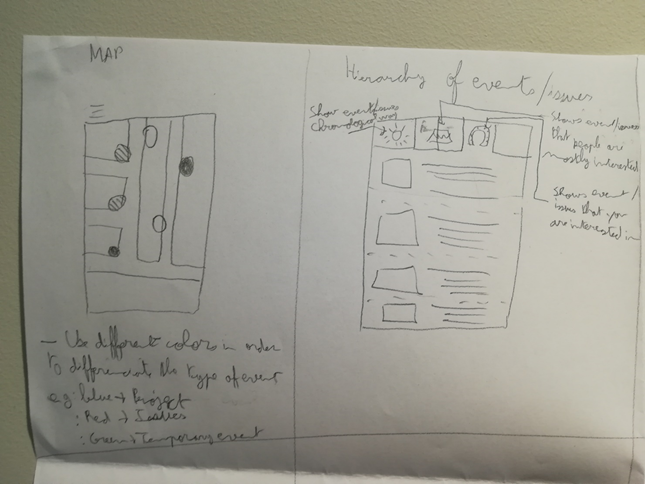 MAP
- Use different colors in order
to differenciate the type of event
e.g: blue → Project
: Red → Issues
: Green → Temporary event
Hierarchy of events/issues
Show event/issues
chronological way
Shows event/issues
that people are
mostly interested
Shows event/
issues that you
are interested in